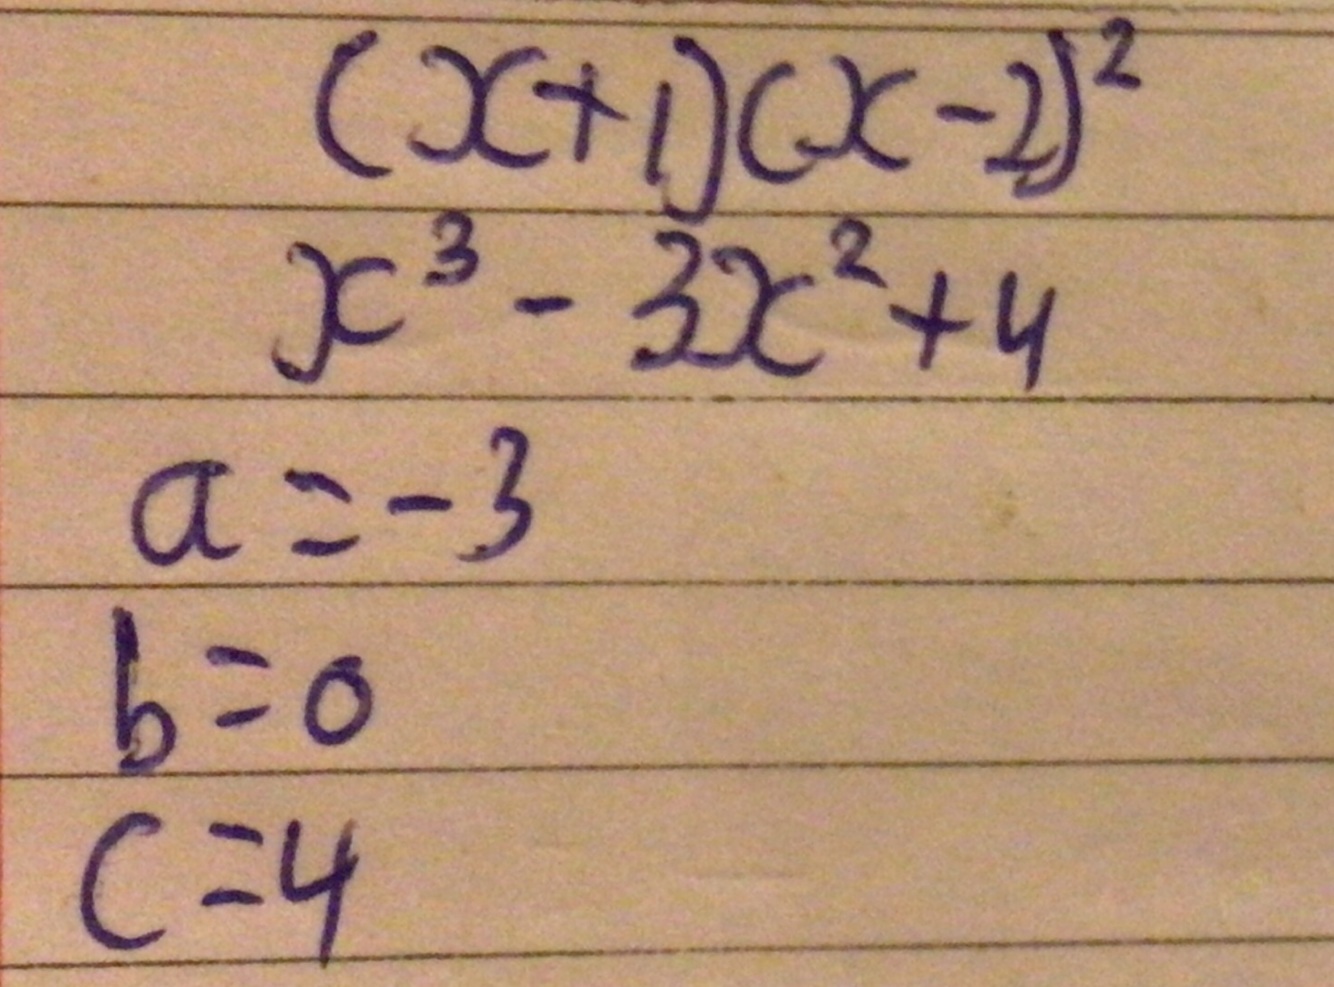 (x+1)(x-2)²
x³ - 3x² + 4
a = -3
b = 0
c = 4